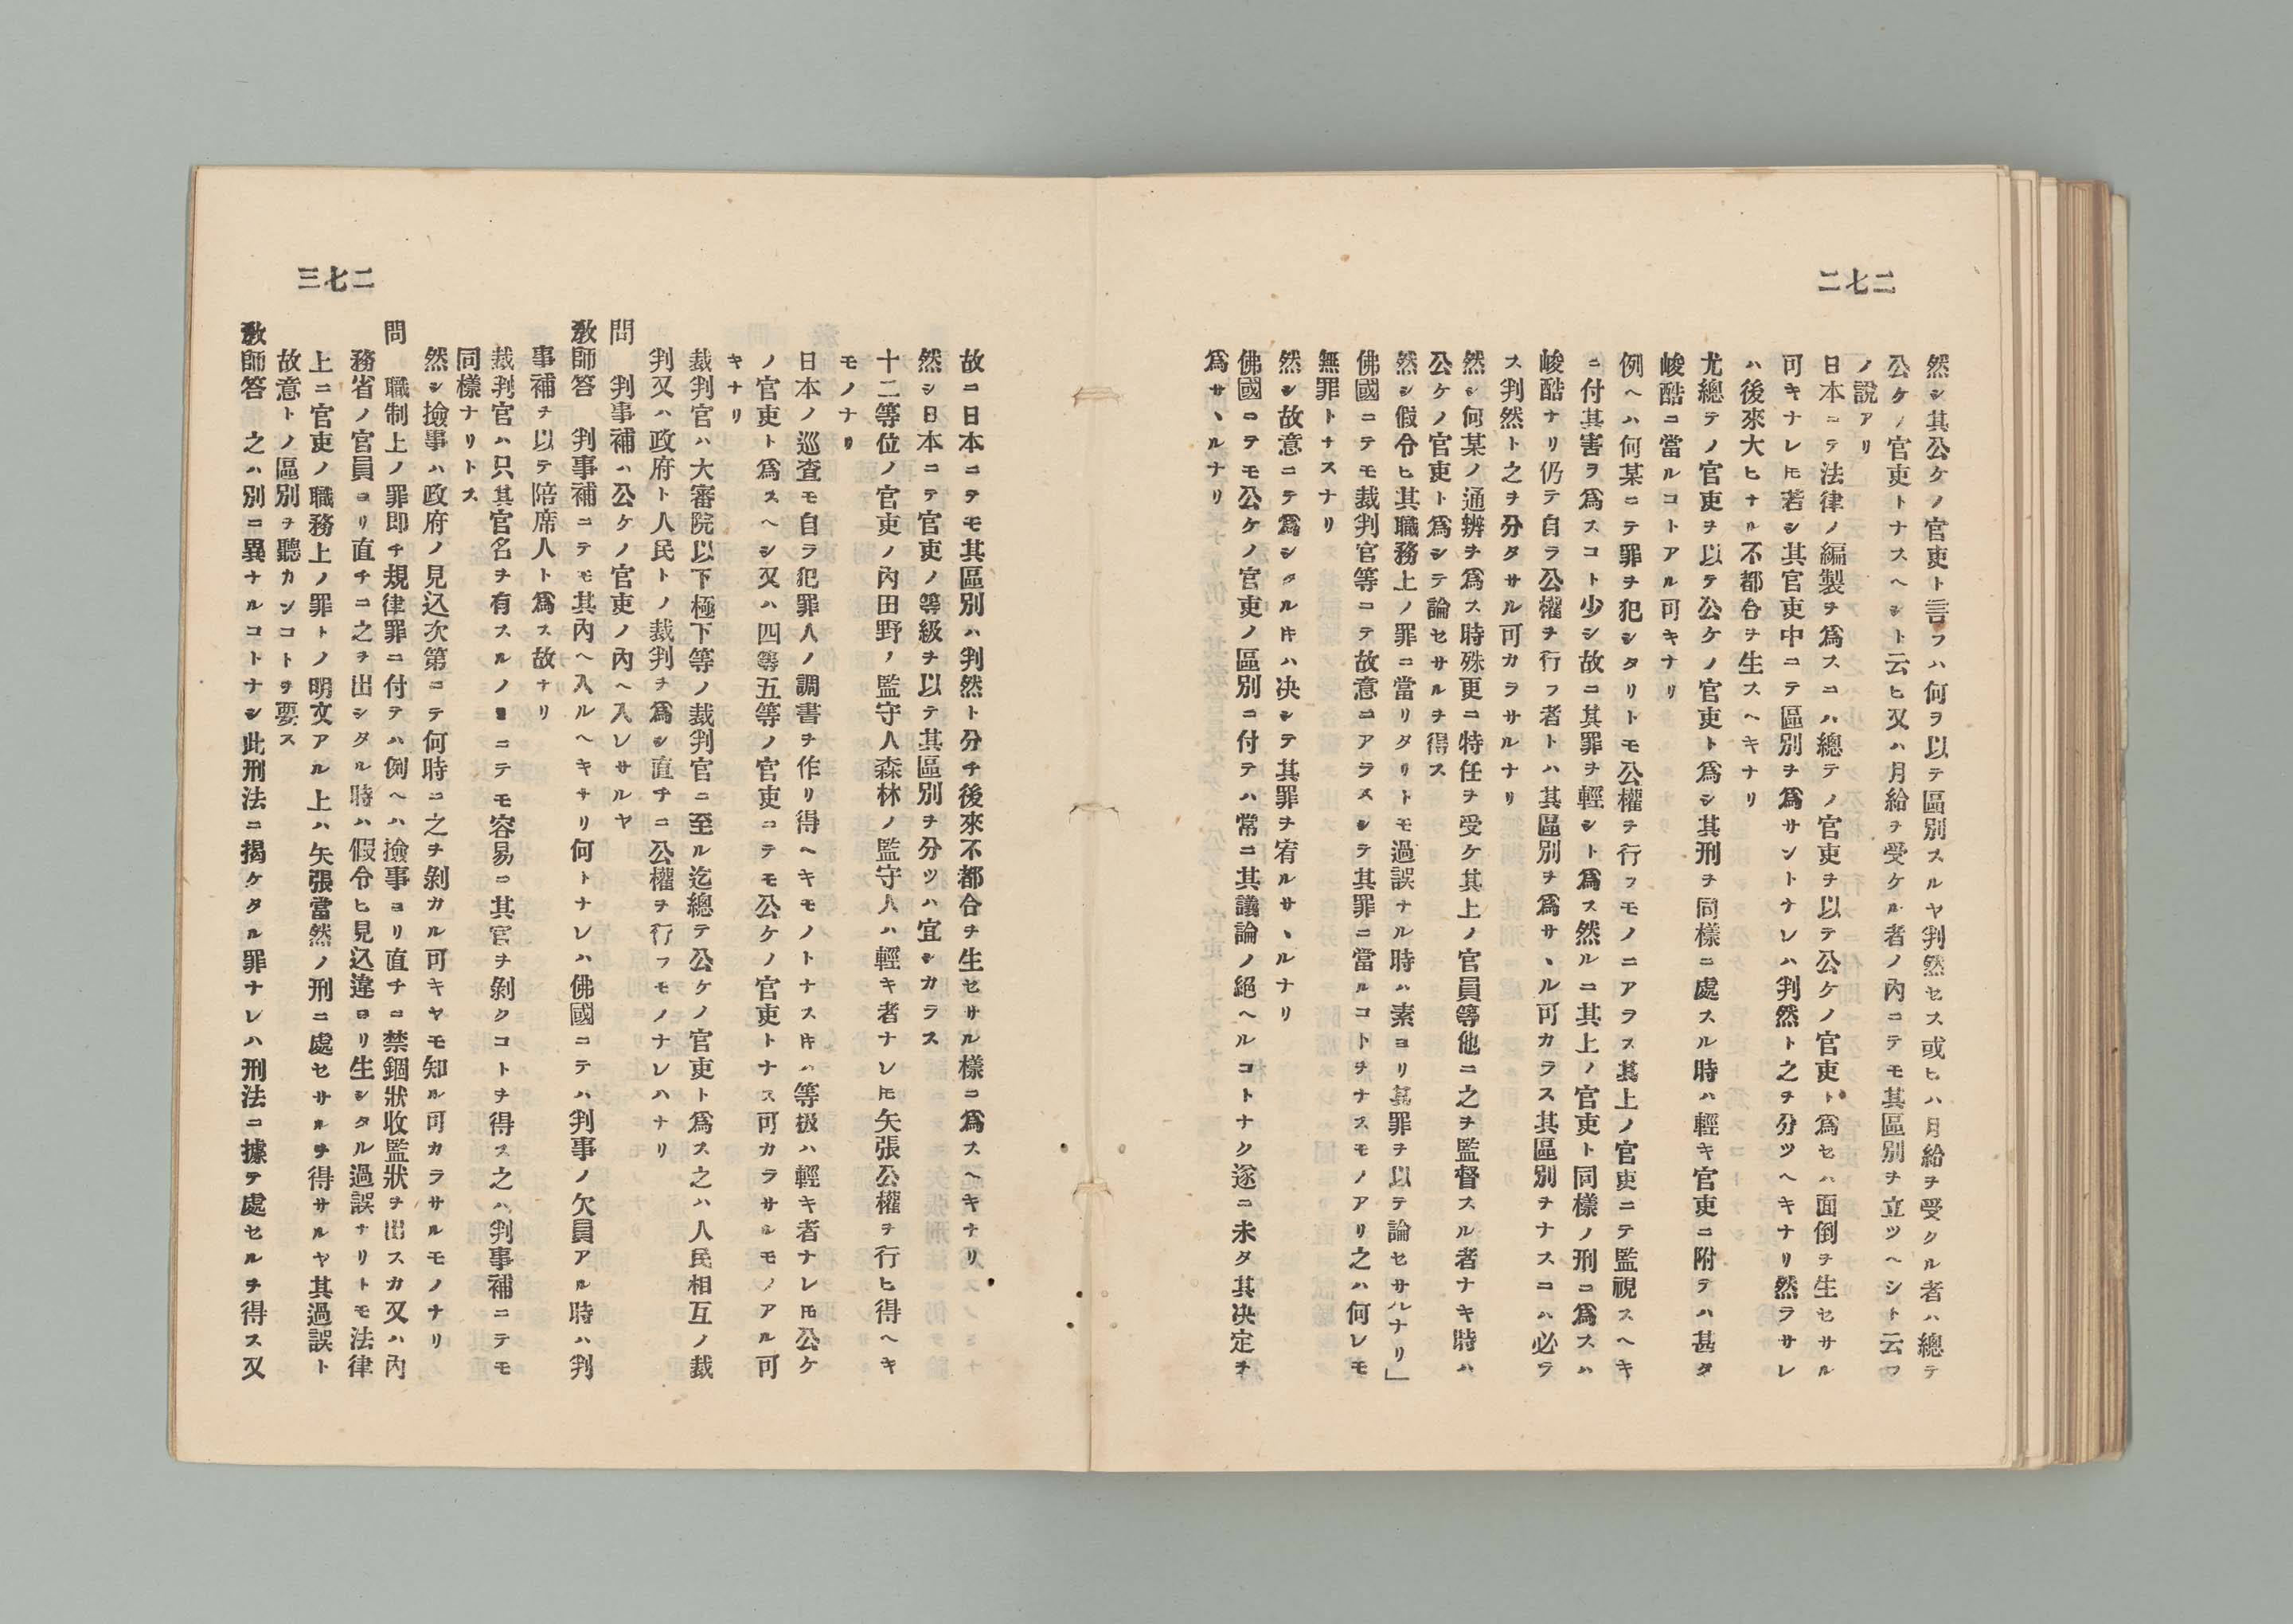 二七二
然シ其公ケノ官吏ト言フハ何ヲ以テ區別スルヤ判然セス或ヒハ月給ヲ受クル者ハ總テ
公ケノ官吏トナスヘシト云ヒ又ハ月給ヲ受ケル者ノ內ニテモ其區別ヲ立ツヘシト云フ
ノ說アリ
日本ニテ法律ノ編製ヲ爲スニハ總テノ官吏ヲ以テ公ケノ官吏ト爲セハ面倒ヲ生セサル
可キナレ𪜈若シ其官吏中ニテ區別ヲ爲サントナレハ判然ト之ヲ分ツヘキナリ然ラサレ
ハ後來大ヒナル不都合ヲ生スヘキナリ
尤總テノ官吏ヲ以テ公ケノ官吏ト爲シ其刑ヲ同樣ニ處スル時ハ輕キ官吏ニ附テハ甚タ
峻酷ニ當ルコトアル可キナリ
例ヘハ何某ニテ罪ヲ犯シタリトモ公權ヲ行フモノニアラス其上ノ官吏ニテ監視スヘキ
ニ付其害ヲ爲スコト少シ故ニ其罪ヲ輕シト爲ス然ルニ其上ノ官吏ト同樣ノ刑ニ爲スハ
峻酷ナリ仍テ自ラ公權ヲ行フ者トハ其區別ヲ爲サヽル可カラス其區別ヲナスニハ必ラ
ス判然ト之ヲ分タサル可カラサルナリ
然シ何某ノ通辨ヲ爲ス時殊更ニ特任ヲ受ケ其上ノ官員等他ニ之ヲ監督スル者ナキ時ハ
公ケノ官吏ト爲シテ論セサルヲ得ス
然シ假令ヒ其職務上ノ罪ニ當リタリトモ過誤ナル時ハ素ヨリ其罪ヲ以テ論セサルナリ」
佛國ニテモ裁判官等ニテ故意ニアラスシテ其罪ニ當ルコトヲナスモノアリ之ハ何レモ
無罪トナスナリ
然シ故意ニテ爲シタル𪜈ハ决シテ其罪ヲ宥ルサヽルナリ
佛國ニテモ公ケノ官吏ノ區別ニ付テハ常ニ其議論ノ絕ヘルコトナク遂ニ未タ其决定ヲ
爲サヽルナリ
二七三
故ニ日本ニテモ其區別ハ判然ト分チ後來不都合ヲ生セサル樣ニ爲スヘキナリ
然シ日本ニテ官吏ノ等級ヲ以テ其區別ヲ分ツハ宜シカラス
十二等位ノ官吏ノ內田野ノ監守人森林ノ監守人ハ輕キ者ナレ𪜈矢張公權ヲ行ヒ得ヘキ
モノナリ
日本ノ巡査モ自ラ犯罪人ノ調書ヲ作リ得ヘキモノトナス𪜈ハ等級ハ輕キ者ナレ𪜈公ケ
ノ官吏ト爲スヘシ又ハ四等五等ノ官吏ニテモ公ケノ官吏トナス可カラサルモノアル可
キナリ
裁判官ハ大審院以下極下等ノ裁判官ニ至ル迄總テ公ケノ官吏ト爲ス之ハ人民相互ノ裁
判又ハ政府ト人民トノ裁判ヲ爲シ直チニ公權ヲ行フモノナレハナリ
問　判事補ハ公ケノ官吏ノ內ヘ入レサルヤ
敎師答　判事補ニテモ其內ヘ入ルヘキナリ何トナレハ佛國ニテハ判事ノ欠員アル時ハ判
事補ヲ以テ陪席人ト爲ス故ナリ
裁判官ハ只其官名ヲ有スルノミニテモ容易ニ其官ヲ剝クコトヲ得ス之ハ判事補ニテモ
同樣ナリトス
然シ撿事ハ政府ノ見込次第ニテ何時ニ之ヲ剝カル可キヤモ知ル可カラサルモノナリ
問　職制上ノ罪卽チ規律罪ニ付テハ例ヘハ撿事ヨリ直チニ禁錮狀收監狀ヲ出スカ又ハ內
務省ノ官員ヨリ直チニ之ヲ出シタル時ハ假令ヒ見込違ヨリ生シタル過誤ナリトモ法律
上ニ官吏ノ職務上ノ罪トノ明文アル上ハ矢張當然ノ刑ニ處セサルヲ得サルヤ其過誤ト
故意トノ區別ヲ聽カンコトヲ要ス
敎師答　之ハ別ニ異ナルコトナシ此刑法ニ揭ケタル罪ナレハ刑法ニ據テ處セルヲ得ス又